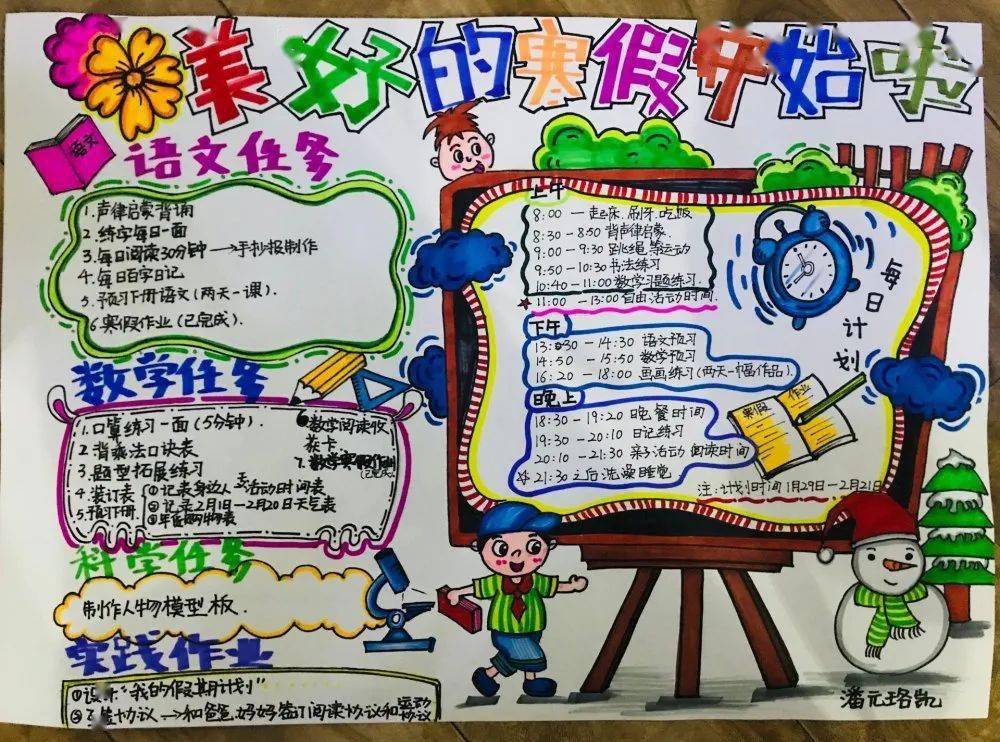 美好的寒假开始啦
语文
语文任务
1.声律启蒙背诵
2.练字每日一面
3.每日阅读30分钟→手抄报制作
4.每日百字日记
5.预习下册语文(两天一课).
6.寒假作业(已完成).
数学任务
1.口算练习一面(5分钟).
2.背乘法口诀表
3.题型拓展练习
4.装订表
5.预习下册
①记录身边人一天活动时间表
②记录2月1日—2月20日天气表
③年货购物表
6.数学阅读收
获卡
7.数学寒假作业
科学任务
制作人物模型板.
实践作业
①设计"我的假期计划"
②签协议→和爸爸.妈妈签订阅读协议和运动
协议
上午
8:00 — 起床.刷牙.吃饭
8:30 — 8:50 背声律启蒙.
9:00 — 9:30 跳绳等运动
9:50 — 10:30 书法练习
10:40 — 11:00 数学习题练习.
11:00 — 13:00 自由活动时间.
下午
13:30 — 14:30 语文预习
14:50 — 15:50 数学预习
16:20 — 18:00 画画练习(两天一幅作品).
晚上
18:30 — 19:20 晚餐时间
19:30 — 20:10 日记练习
20:10 — 21:30 亲子活动 阅读时间
21:30 之后洗澡睡觉
每日计划
寒假
作业
注:计划时间1月29日—2月21日
潘元珞凯